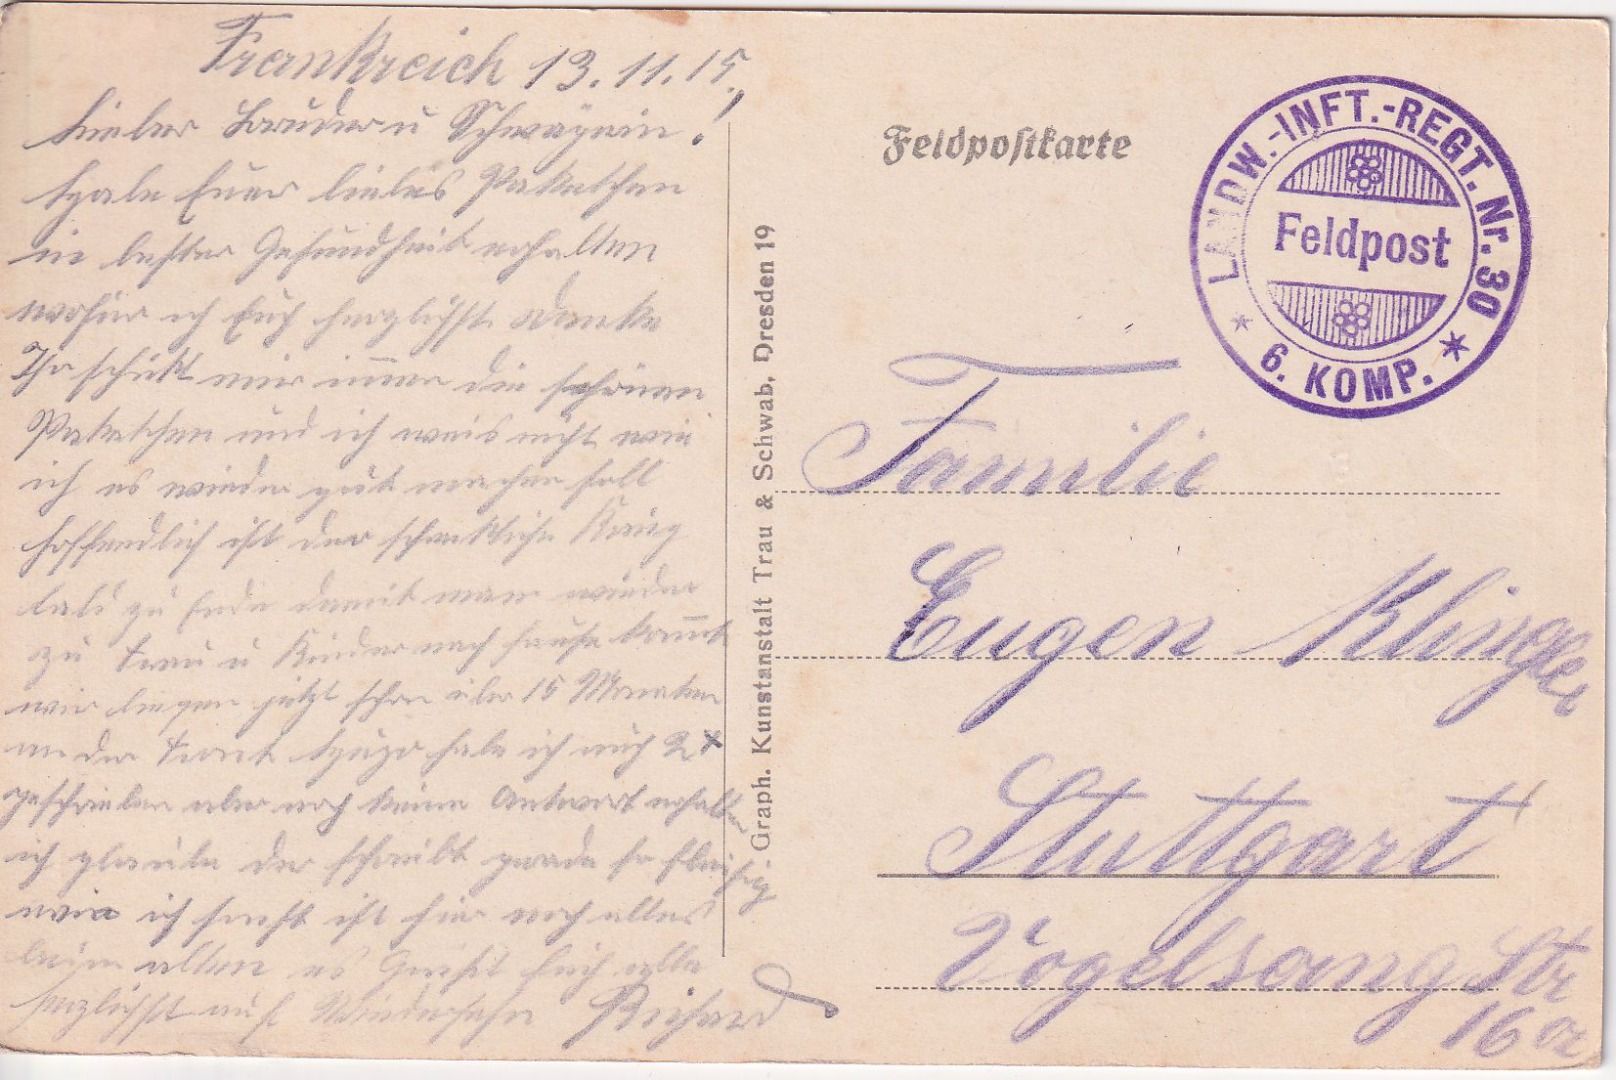 Frankreich 13.11.15.
Lieber Bruder u Schwägrin!
Habe Euer liebes Paketchen
in bester Gesundheit erhalten
wofür ich Euch herzlichst Danke
Ihr schikt mir immer die schönen
Paketchen und ich weis nicht wie
ich es wieder gut machen soll
hoffendlich ist der schrekliche Krieg
bald zu Ende damit man wieder
zu Frau u Kinder nach Hause kommt
wir liegen jetzt schon über 15 Monaten
an der Front habe ich auch 2x
geschrieben aber noch keine Antwort erhalten
ich glaube der schreibt gerade so fleisig
wie ich sonst ist hier noch alles
beim alten es Grüßt Euch alle
herzlichst auf Wiedersehn Richard
Graph. Kunstanstalt Trau & Schwab, Dresden 19
Feldpostkarte
LANDW.-INFT.-REGT. Nr. 30
Feldpost
* 6. KOMP. *
Familie
Eugen Klingler
Stuttgart
Vogelsang Str
16a